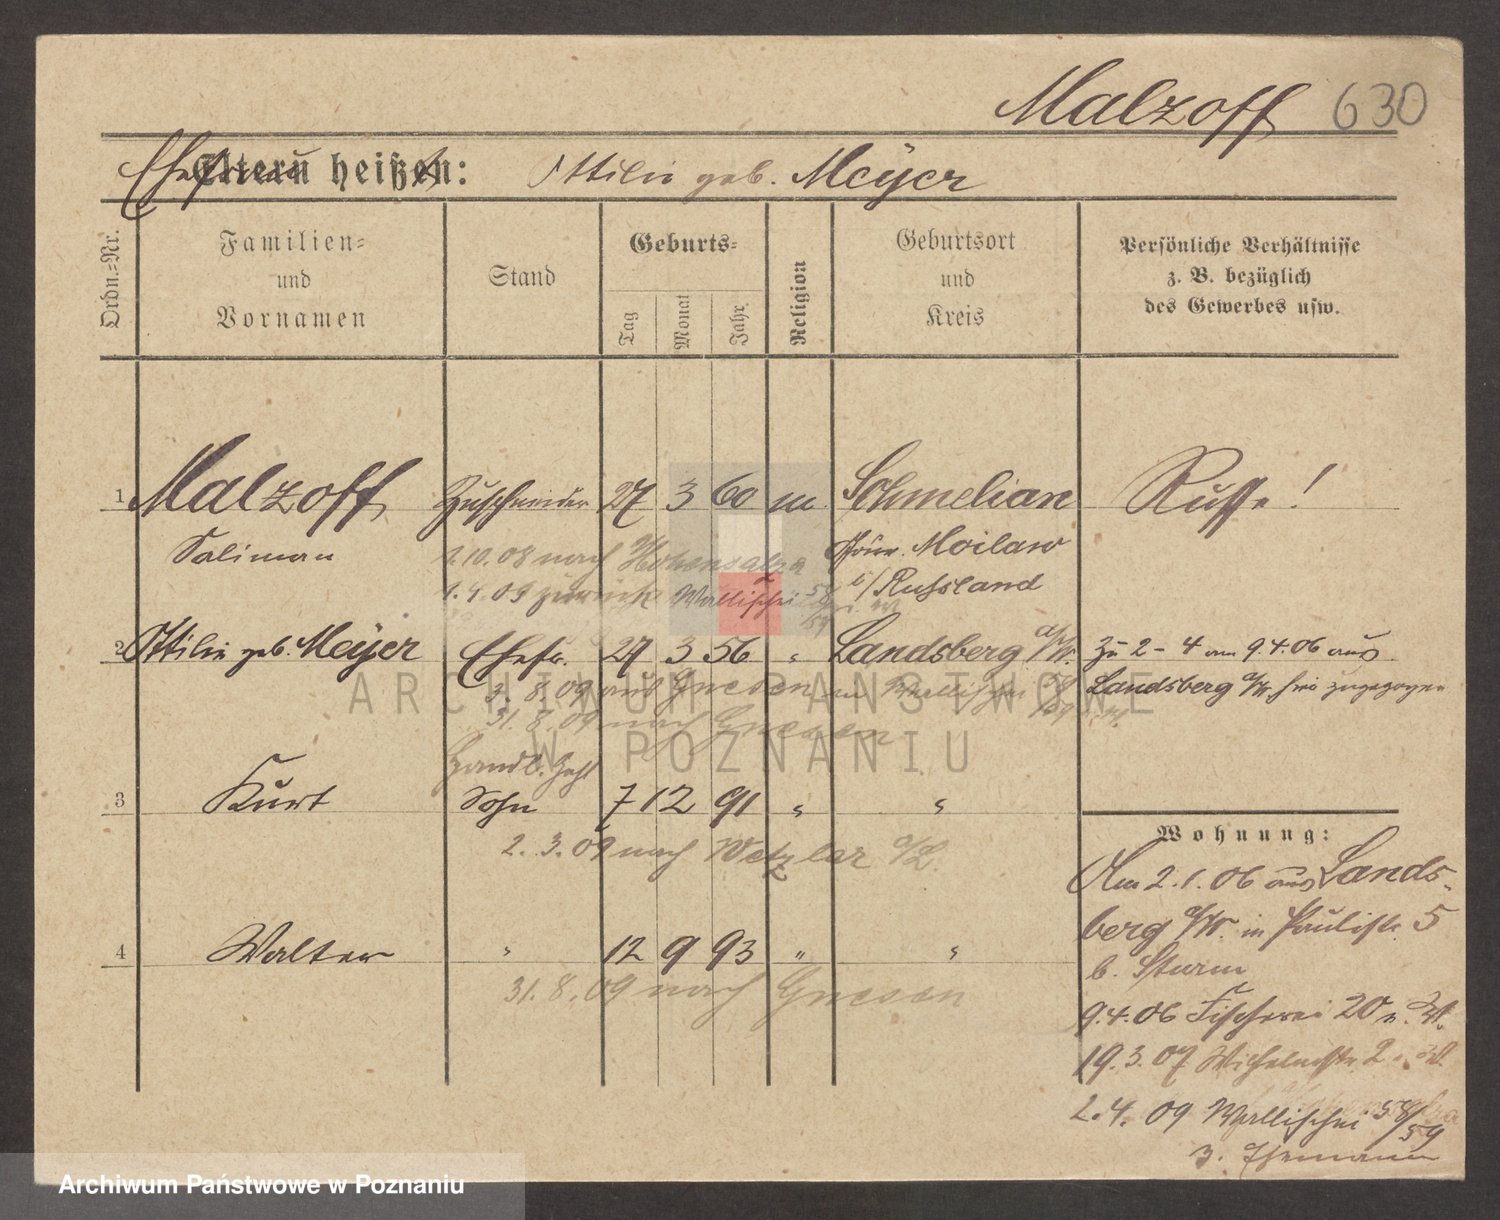 Malzoff 630
Ehefrau heißt: Ottilie geb. Meÿer
Ordn.=Nr.
Familien=
und
Vornamen
Stand
Geburts=
Tag
Monat
Jahr
Religion
Geburtsort
und
Kreis
Persönliche Verhältnisse
z. B. bezüglich
des Gewerbes usw.
1 Malzoff Zuschneider 27 3 60 m Schmelian Russe!
Soliman 1.10.08 nach Hohensalza Gouv. Moilaw
1.4.09 zurück Wallischei 58/59 i/Russland
2 Ottilie geb. Meÿer Ehefr. 27 3 56 " Landsberg a/W. Zu 2-4 am 9.4.06 aus
3. 8. 09 aus Gnesen Landsberg a/W. hier zugezogen
31. 8. 09 nach Gnesen
Handl. Geh.
3 Kurt Sohn 7 12 91 " "
2. 3. 09 nach Wetzlar a/L.
4 Walter " 12 9 93 " "
31. 8. 09 nach Gnesen
Wohnung:
Am 2.1.06 aus Lands-
berg a/W. in Paulistr. 5
b. Sturm
9.4.06 Fischerei 20
19.3.07 2
2.4.09 Wallischei 58/59
ARCHIWUM PAŃSTWOWE
W POZNANIU
Archiwum Państwowe w Poznaniu